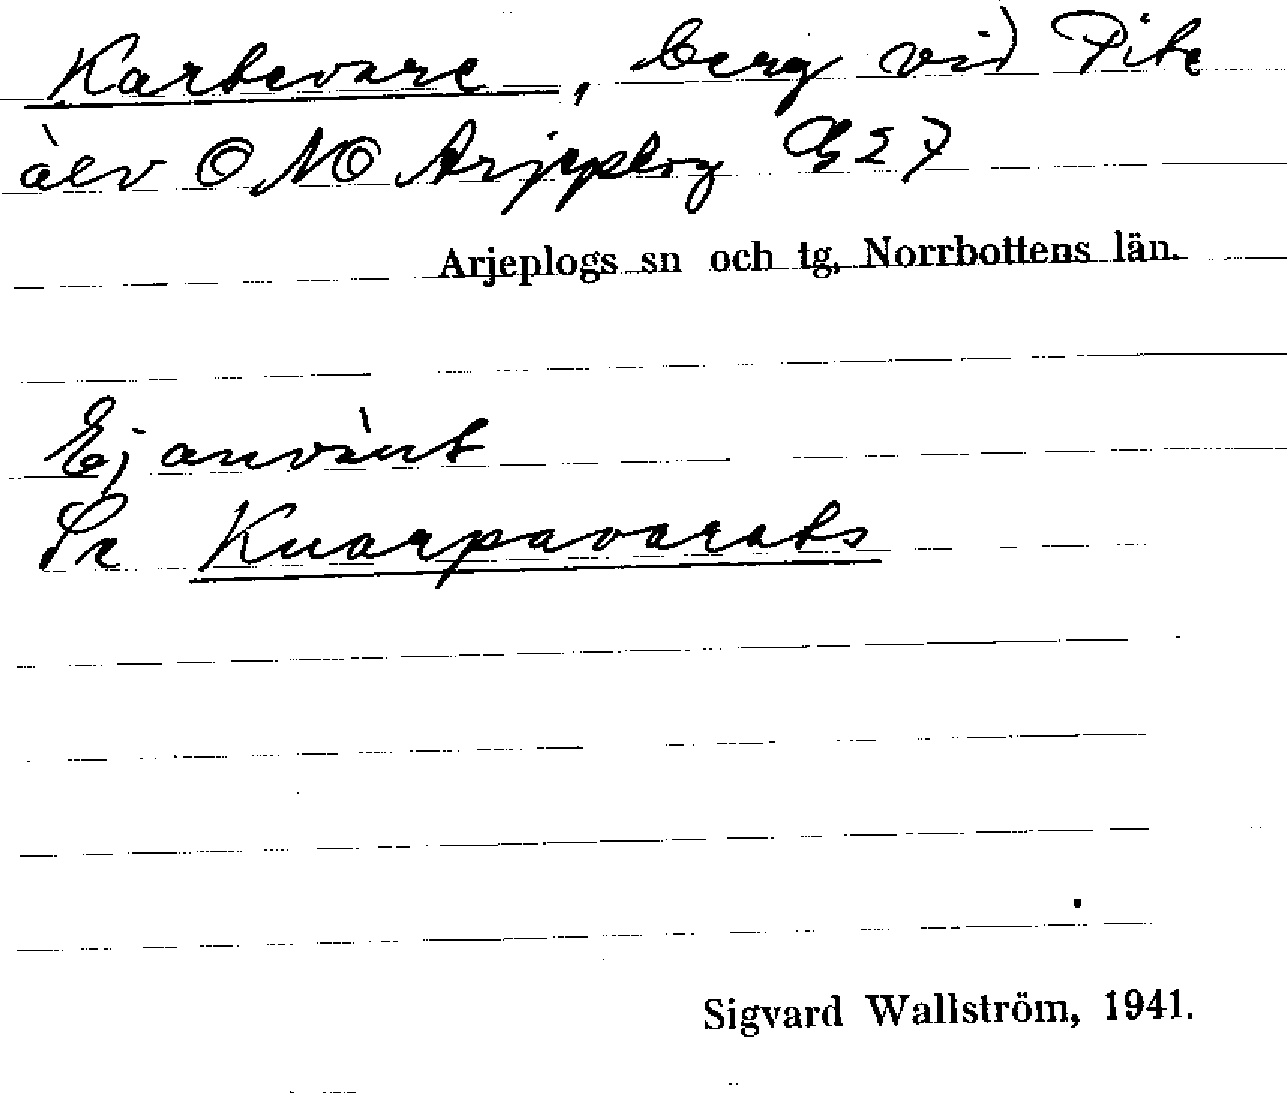 Karbevare, berg vid Pite
älv ONO Arjeplog G27
Arjeplogs sn och tg, Norrbottens län.
Ej använt
Se Kuarpavarats
Sigvard Wallström, 1941.